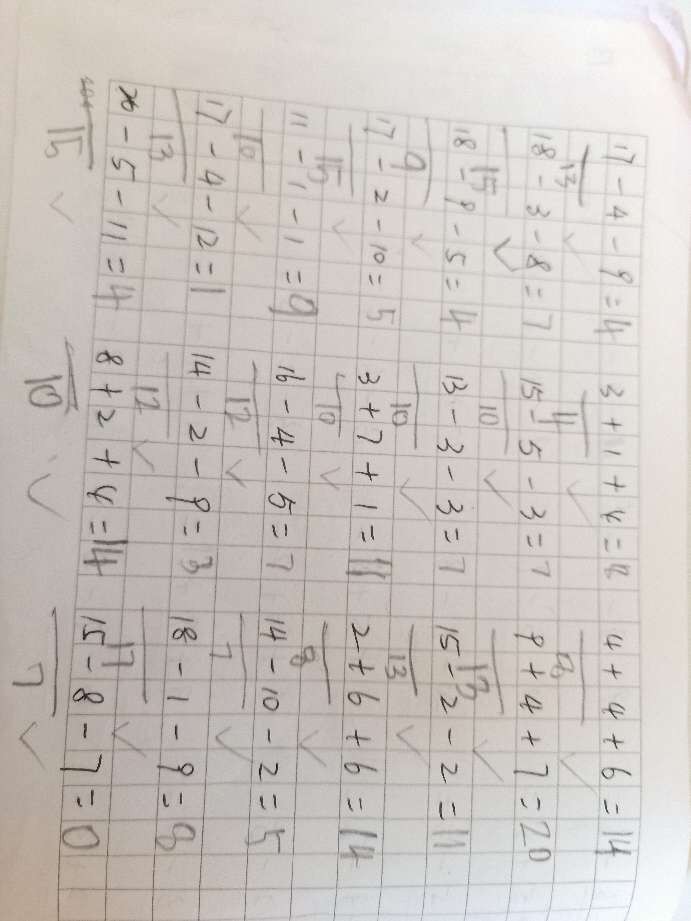 17 - 4 - 9 = 4 3 + 1 + 4 = 8 4 + 4 + 6 = 14
13 4 8
18 - 3 - 8 = 7 15 - 5 - 3 = 7 9 + 4 + 7 = 20
15 10 13
18 - 9 - 5 = 4 13 - 3 - 3 = 7 15 - 2 - 2 = 11
9 10 13
17 - 2 - 10 = 5 3 + 7 + 1 = 11 2 + 6 + 6 = 14
15 10 8
11 - 1 - 1 = 9 16 - 4 - 5 = 7 14 - 10 - 2 = 5
10 12 7
17 - 4 - 12 = 1 14 - 2 - 9 = 3 18 - 1 - 9 = 8
13 12 17
- 5 - 11 = 4 8 + 2 + 4 = 14 15 - 8 - 7 = 0
15 10 7